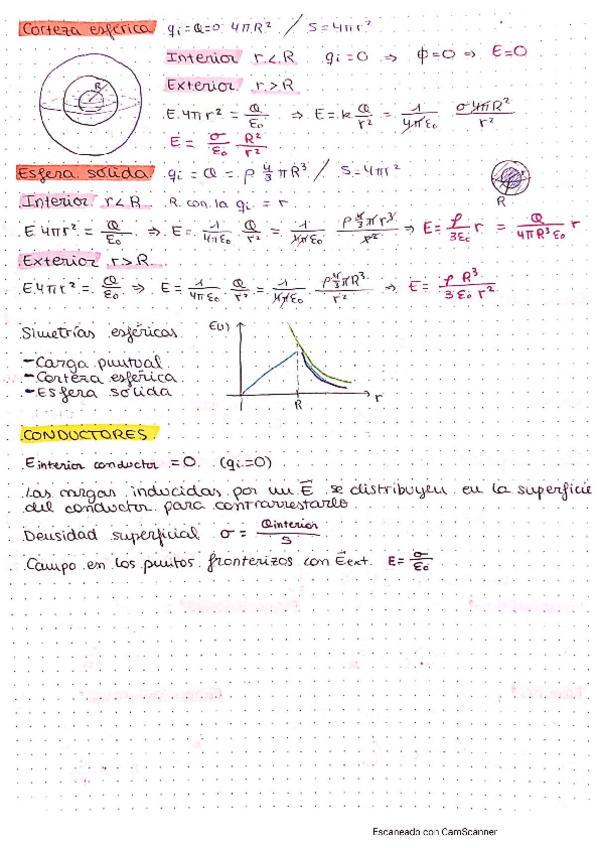 Corteza esférica qi=Q=σ 4πR² / S=4πr²
Interior r<R qi=0 ⇒ ϕ=0 ⇒ E=0
R
Exterior r>R
E·4πr² = Q/ε₀ ⇒ E=k Q/r² = 1/4πε₀ σ4πR²/r²
E = σ/ε₀ R²/r²
Esfera sólida qi = Q = ρ 4/3 πR³ / S=4πr²
Interior r<R. R con la qi = r
R
E 4πr² = Q/ε₀ ⇒ E = 1/4πε₀ Q/r² = 1/4πε₀ ρ4/3πr³/r² ⇒ E = ρ/3ε₀ r = Q/4πR³ε₀ r
Exterior r>R
E·4πr² = Q/ε₀ ⇒ E = 1/4πε₀ Q/r² = 1/4πε₀ ρ4/3πR³/r² ⇒ E = ρ R³/3ε₀ r²
Simetrías esféricas E(r)
- Carga puntual
- Corteza esférica
- Esfera sólida r
R
CONDUCTORES
E interior conductor = 0. (qi=0)
Las cargas inducidas por un E⃗ se distribuyen en la superficie
del conductor para contrarrestarlo
Densidad superficial σ = Qinterior/S
Campo en los puntos fronterizos con E⃗ext. E = σ/ε₀
Escaneado con CamScanner